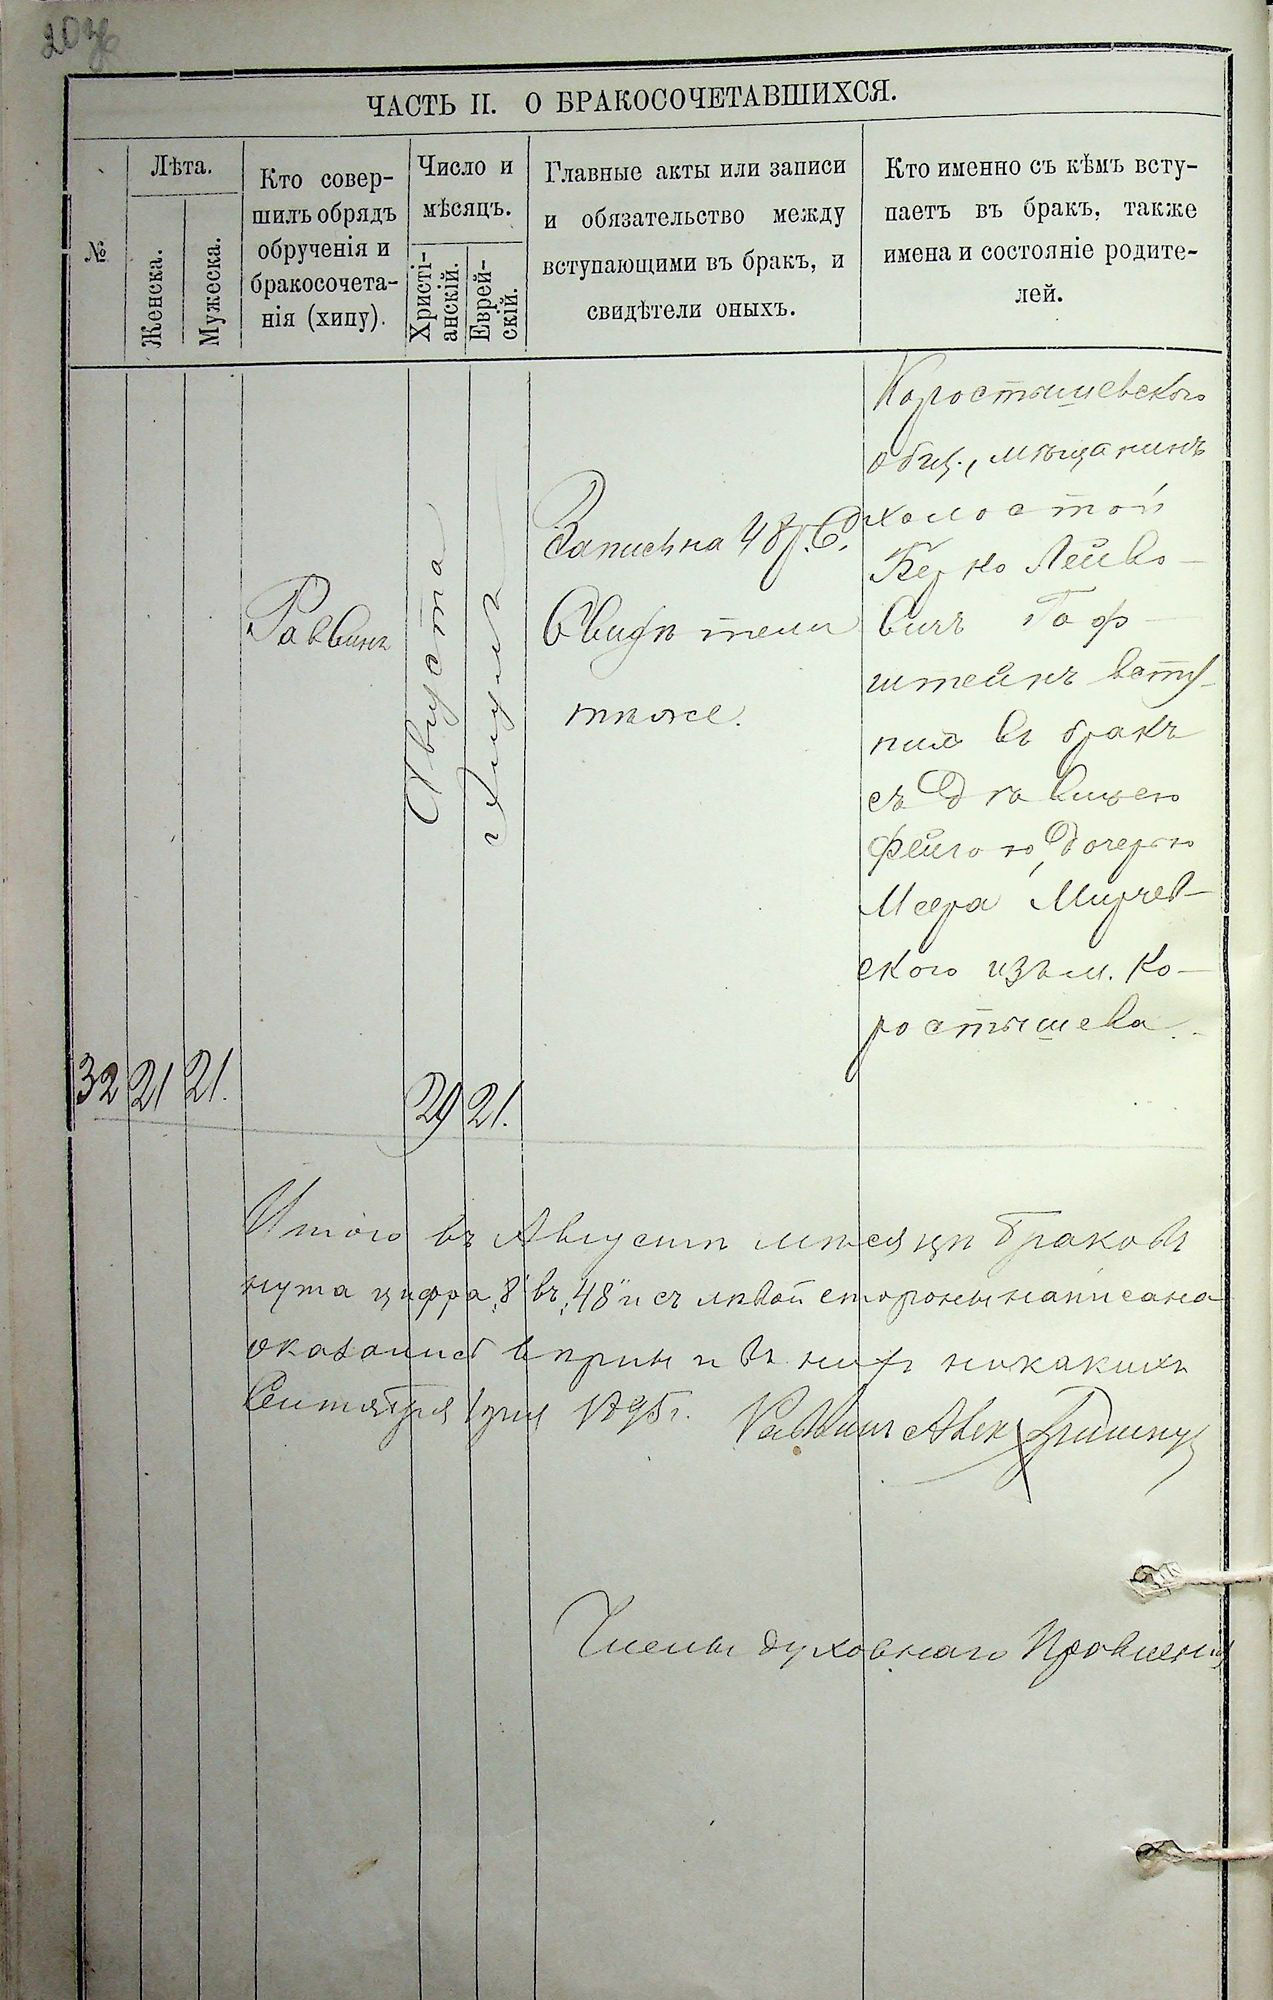 ЧАСТЬ II. О БРАКОСОЧЕТАВШИХСЯ.
№
Лѣта.
Женска.
Мужеска.
Кто совер-
шилъ обрядъ
обрученія и
бракосочета-
нія (хипу).
Число и
мѣсяцъ.
Христі-
анскій.
Еврей-
скій.
Главные акты или записи
и обязательство между
вступающими въ бракъ, и
свидѣтели оныхъ.
Кто именно съ кѣмъ всту-
паетъ въ бракъ, также
имена и состояніе родите-
лей.
32
21
21.
Раввинъ
Августа
29
Элулъ
21.
Запись на 48 р. С.
Свидѣтели
тѣже.
Коростышевского
общ., мѣщанинъ
холостой
Берко Лейбо-
вичъ Гоф-
штейнъ всту-
пилъ въ бракъ
съ Дѣвицею
Фейгою, дочерью
Меера
ского изъ м. Ко-
ростышева.
Итого въ Августѣ мѣсяцѣ браковъ
нута цифра „8 въ „48" и съ лѣвой стороны написана
оказались вѣрны и въ нихъ никакихъ
Сентября 1 дня 1895 г. Раввинъ
Члены духовнаго Правленія